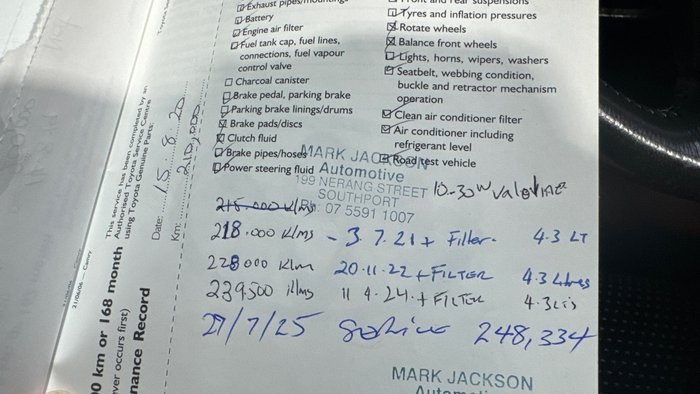 Exhaust pipes/mountings
Battery
Engine air filter
Fuel tank cap, fuel lines,
connections, fuel vapour
control valve
Charcoal canister
Brake pedal, parking brake
Parking brake linings/drums
Brake pads/discs
Clutch fluid
Brake pipes/hoses
Power steering fluid
Front and rear suspensions
Tyres and inflation pressures
Rotate wheels
Balance front wheels
Lights, horns, wipers, washers
Seatbelt, webbing condition,
buckle and retractor mechanism
operation
Clean air conditioner filter
Air conditioner including
refrigerant level
Road test vehicle
MARK JACKSON
Automotive
199 NERANG STREET
SOUTHPORT
Ph: 07 5591 1007
10-30W Valvoline
215.000 Klms
218.000 Klms - 3.7.21 + Filter. 4.3 LT
228000 Klm 20.11.22 + FILTER 4.3 Litres
239,500 Klms 11 4.24. + FILTER 4.3 Lts
27/7/25 Service 248,334
MARK JACKSON
This service has been completed by an
Authorised Toyota Service Centre
using Toyota Genuine Parts:
Date: 15.8.20
Km: 210,000
00 km or 168 month
ver occurs first)
nance Record
21/06/06 — Camry